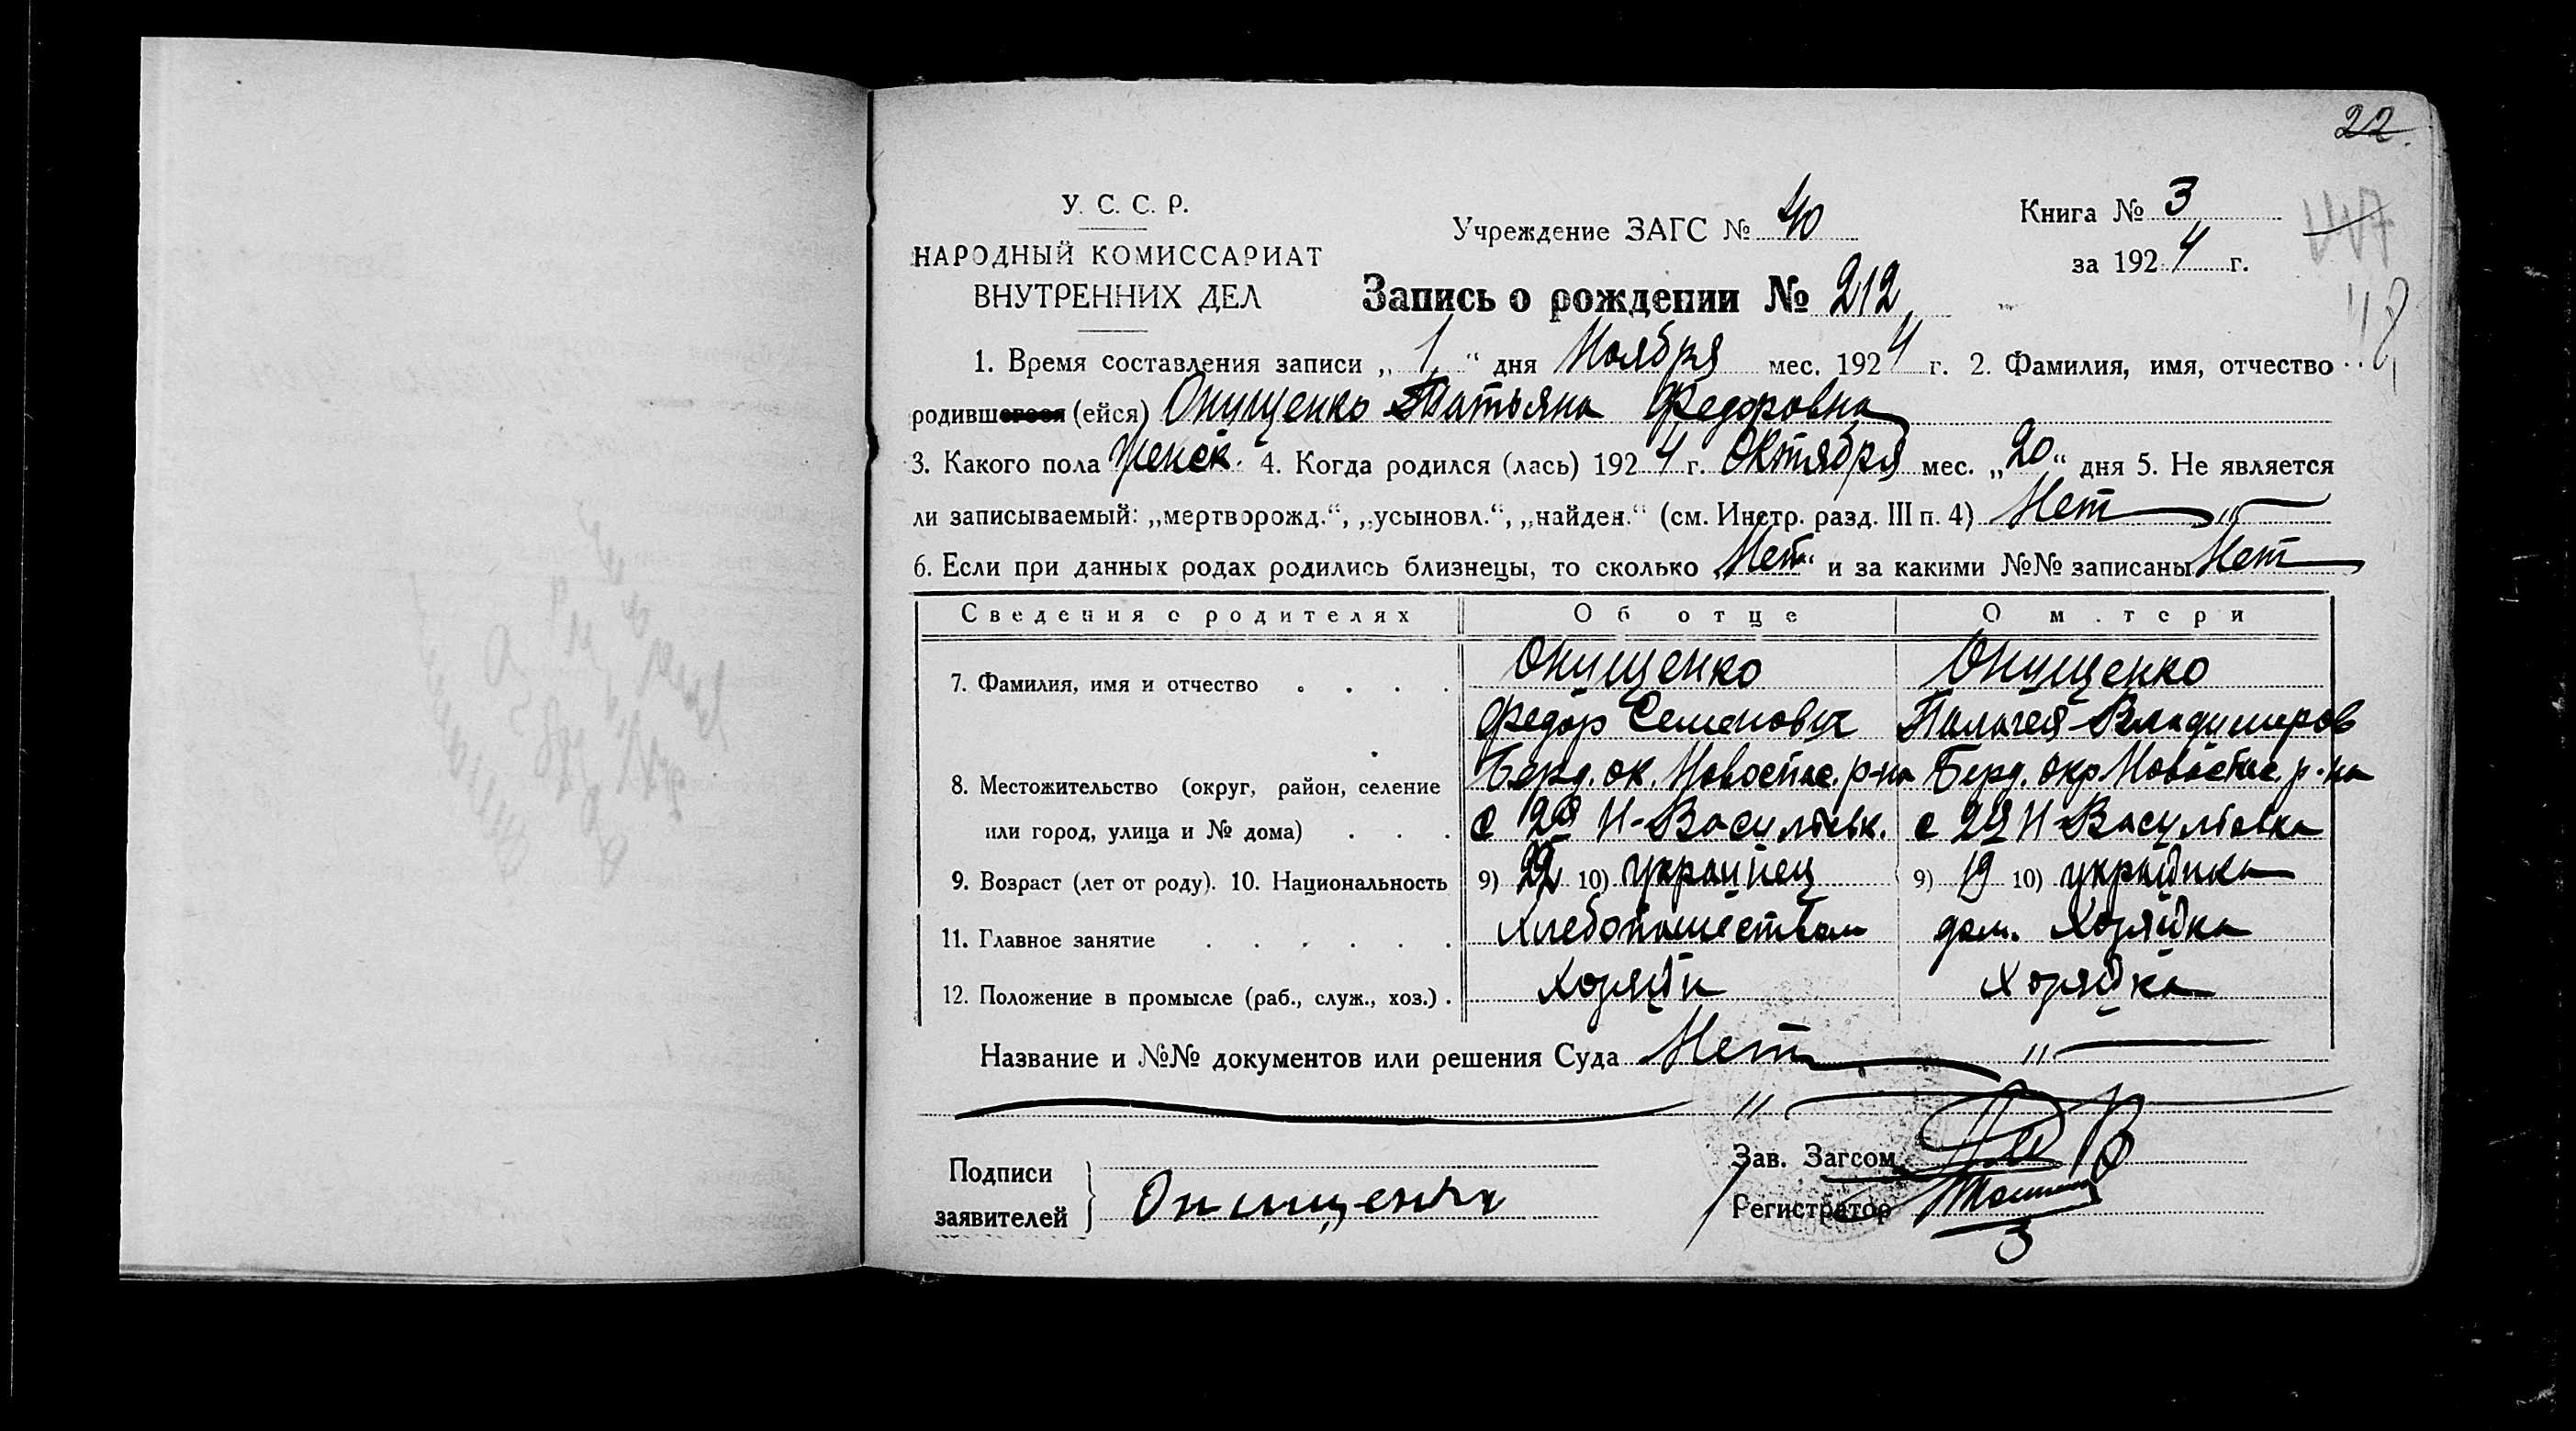 22.
У. С. С. Р.
НАРОДНЫЙ КОМИССАРИАТ
ВНУТРЕННИХ ДЕЛ
Учреждение ЗАГС № 40
Книга № 3
за 1924 г.
Запись о рождении № 212
1. Время составления записи „1" дня Ноября мес. 1924 г. 2. Фамилия, имя, отчество
родившегося (ейся) Онищенко Татьяна Федоровна
3. Какого пола женск. 4. Когда родился (лась) 1924 г. Октября мес. „20" дня 5. Не является
ли записываемый: „мертворожд.", „усыновл.", „найден." (см. Инстр. разд. III п. 4) Нет „
6. Если при данных родах родились близнецы, то сколько „Нет" и за какими №№ записаны Нет
Сведения о родителях Об отце О м.тери
7. Фамилия, имя и отчество . . . . Онищенко Онищенко
Федор Семенович Палагея Владимиров
8. Местожительство (округ, район, селение Берд. ок. Новоспас. р-на Берд. окр Новоспас. р-на
или город, улица и № дома) . . . с 2я Н-Васильевк. с 2я Н-Васильевка
9. Возраст (лет от роду). 10. Национальность 9) 22 10) украинец 9) 19 10) украинка
11. Главное занятие . . . . . . Хлебопашеством дом. Хозяйка
12. Положение в промысле (раб., служ., хоз.) . Хозяин Хозяйка
Название и №№ документов или решения Суда Нет "
"
Подписи
заявителей
Онищенко
Зав. Загсом
Регистратор